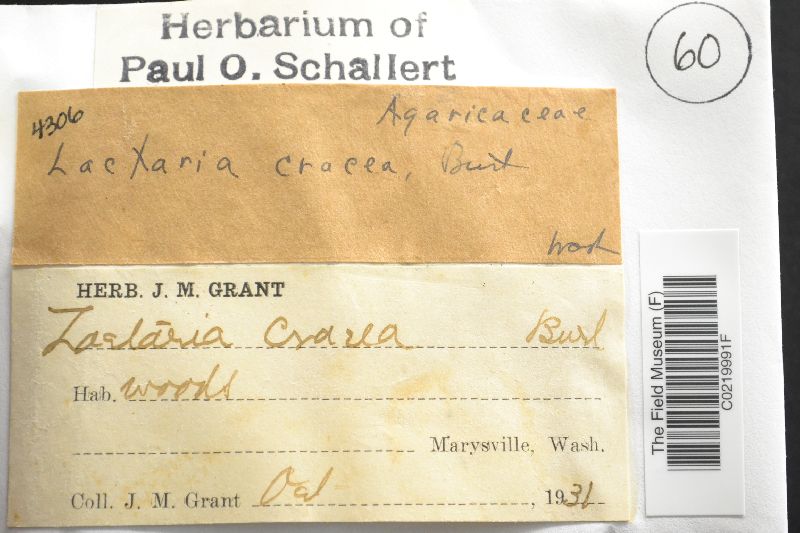 Herbarium of
Paul O. Schallert
60
4306
Agaricaceae
Lactaria cracea, Burl
Wash
HERB. J. M. GRANT
Lactaria Crocea Burl
Hab. woods
Marysville, Wash.
Coll. J. M. Grant Oct , 1931
The Field Museum (F)
C0219991F